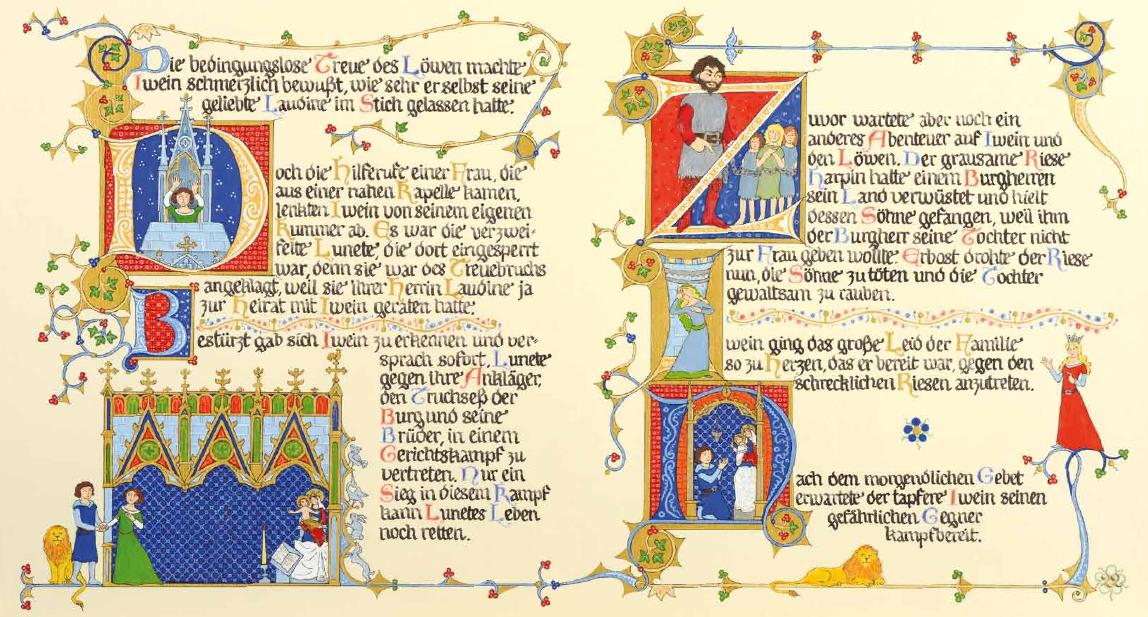 Die bedingungslose Treue des Löwen machte
Iwein schmerzlich bewußt, wie sehr er selbst seine
geliebte Laudine im Stich gelassen hatte.
Doch die Hilferufe einer Frau, die
aus einer nahen Kapelle kamen,
lenkten Iwein von seinem eigenen
Kummer ab. Es war die verzwei-
felte Lunete, die dort eingesperrt
war, denn sie war des Treuebruchs
angeklagt, weil sie ihrer Herrin Laudine ja
zur Heirat mit Iwein geraten hatte.
Bestürzt gab sich Iwein zu erkennen und ver-
sprach sofort, Lunete
gegen ihre Ankläger,
den Truchseß der
Burg und seine
Brüder, in einem
Gerichtskampf zu
vertreten. Nur ein
Sieg in diesem Kampf
kann Lunetes Leben
noch retten.
Zuvor wartete aber noch ein
anderes Abenteuer auf Iwein und
den Löwen. Der grausame Riese
Harpin hatte einem Burgherren
sein Land verwüstet und hielt
dessen Söhne gefangen, weil ihm
der Burgherr seine Tochter nicht
zur Frau geben wollte. Erbost drohte der Riese
nun, die Söhne zu töten und die Tochter
gewaltsam zu rauben.
Iwein ging das große Leid der Familie
so zu Herzen, das er bereit war, gegen den
schrecklichen Riesen anzutreten.
Nach dem morgendlichen Gebet
erwartete der tapfere Iwein seinen
gefährlichen Gegner
kampfbereit.